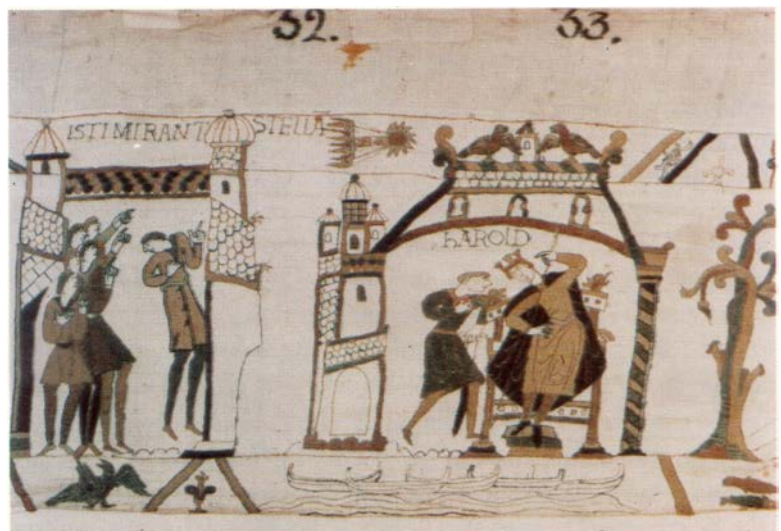 32. 33.
ISTI MIRANT STELLÃ
HAROLD